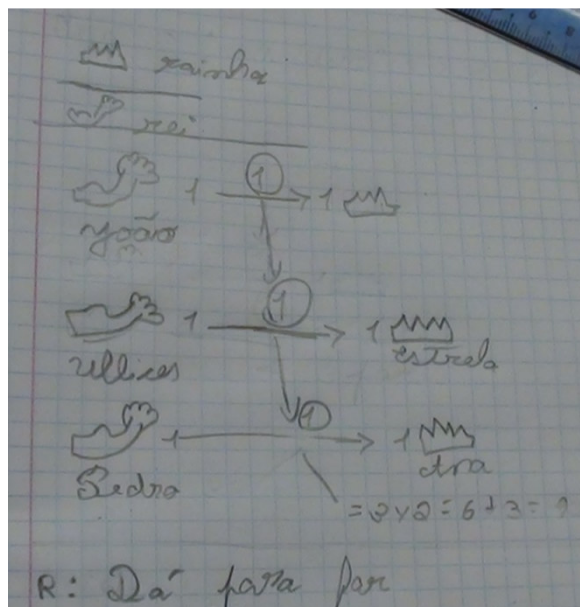 rainha
rei
1 1 1
João
1 1 1
Ullises estrela
1 1 1
Pedro Ana
= 3 x 2 = 6 + 3 =
R: Dá para